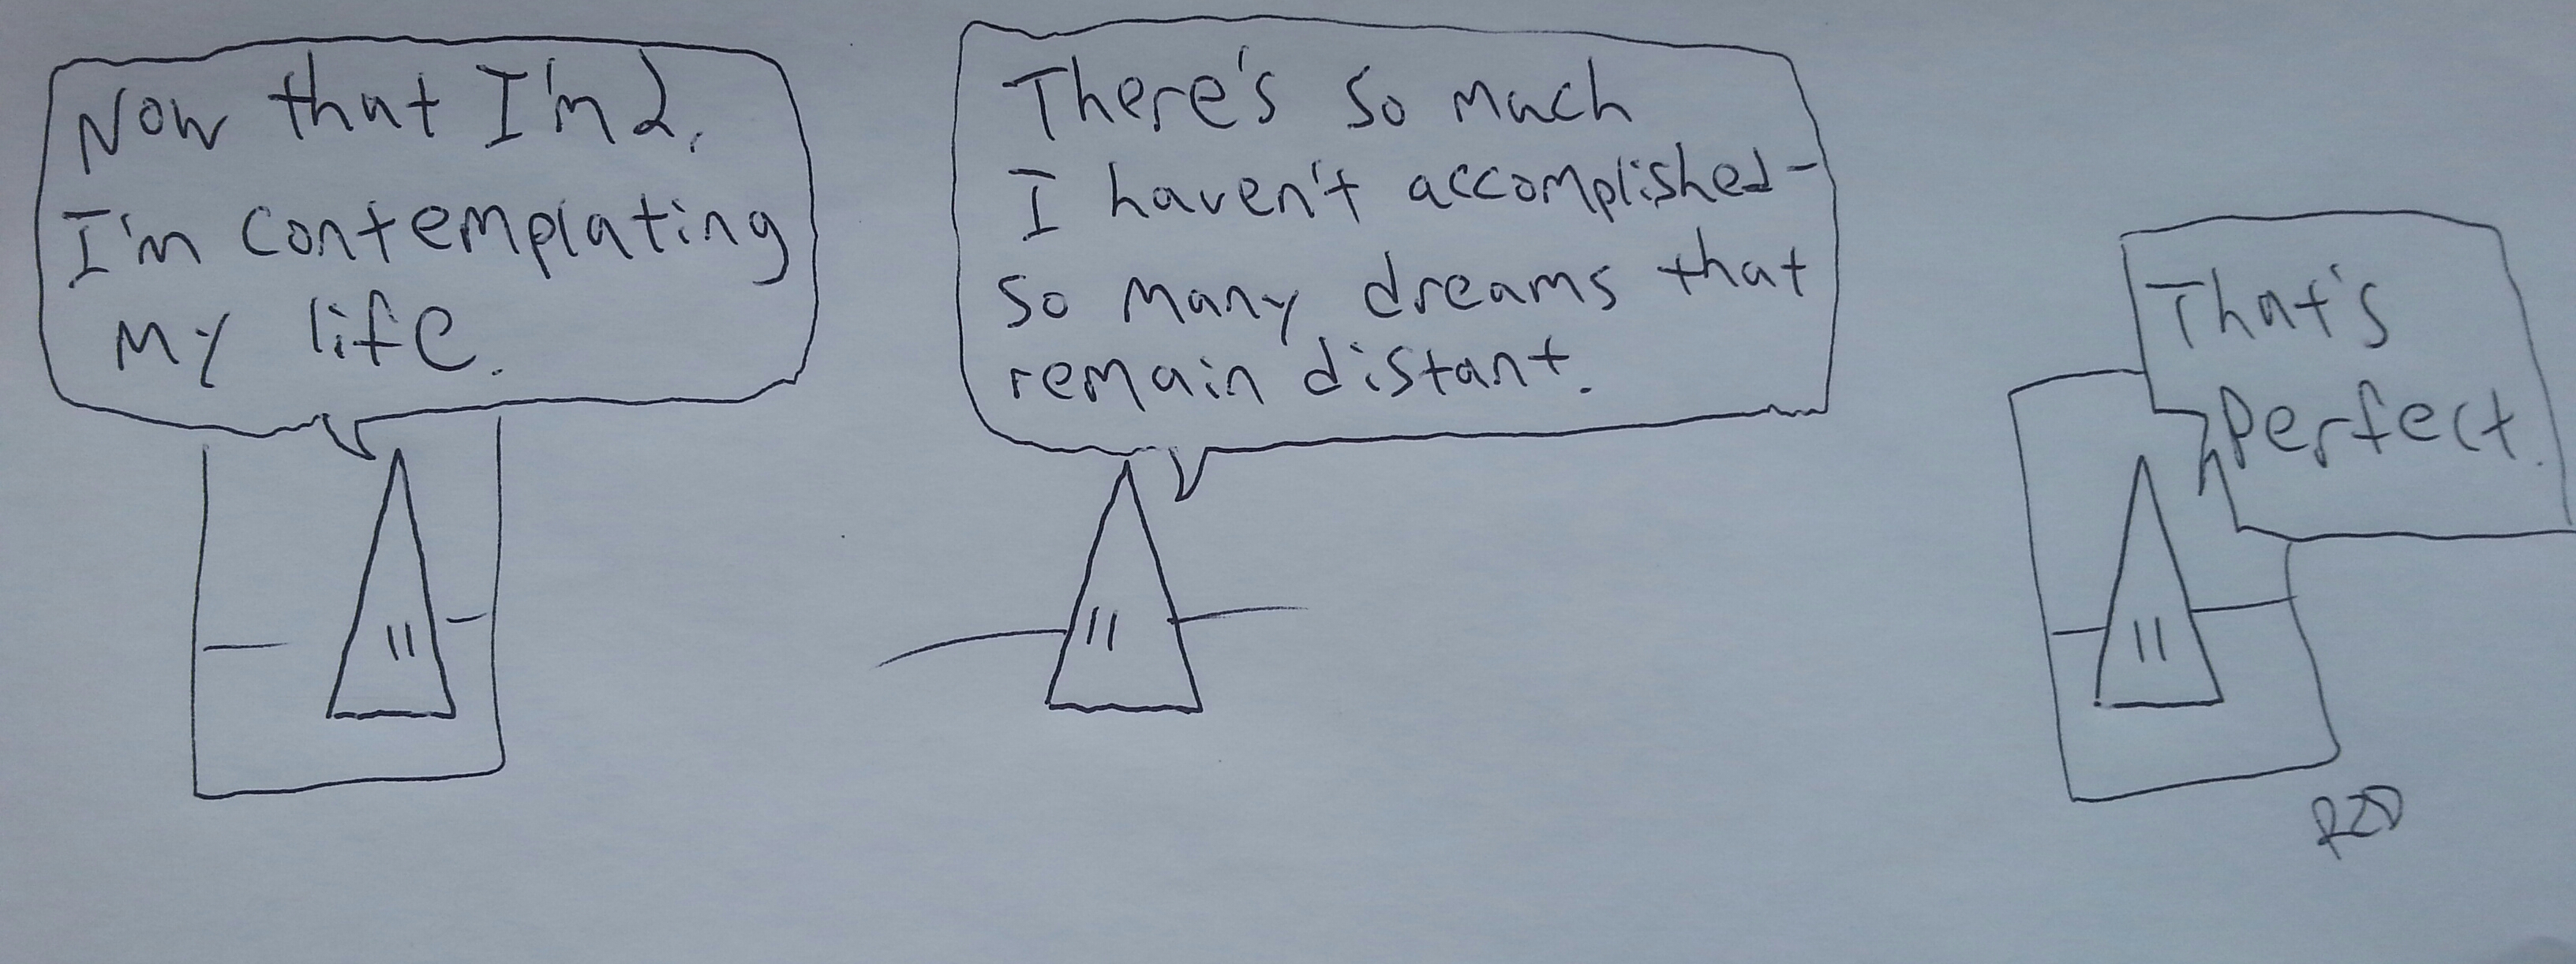 Now that I'm 2,
I'm contemplating
my life.
There's so much
I haven't accomplished-
so many dreams that
remain distant.
That's
perfect.